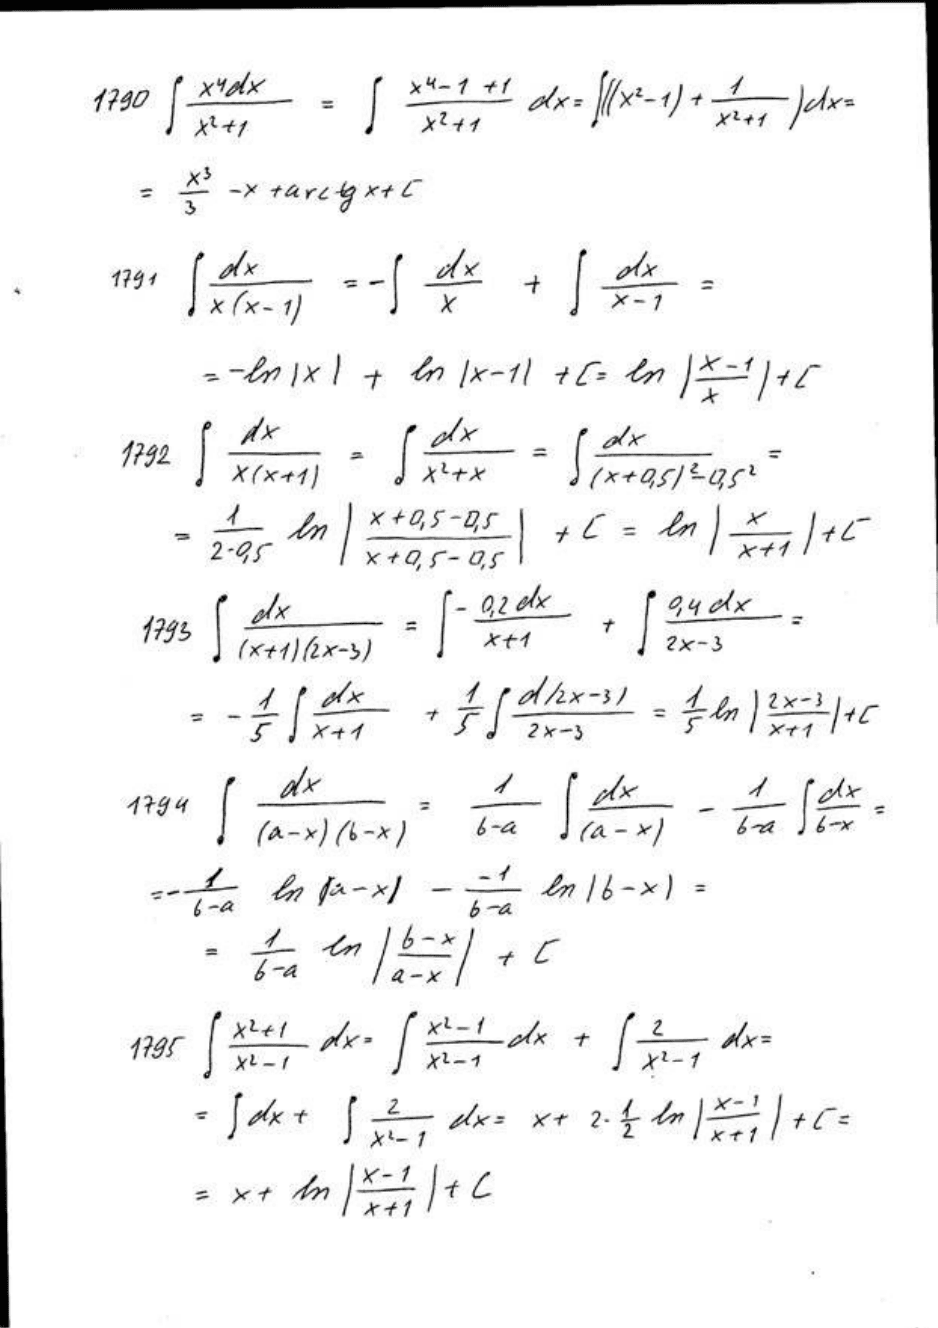 1790 ∫ x⁴dx/(x²+1) = ∫ (x⁴-1+1)/(x²+1) dx = ∫((x²-1) + 1/(x²+1))dx =
= x³/3 -x +arctg x+C
1791 ∫ dx/(x(x-1)) = -∫ dx/x + ∫ dx/(x-1) =
= -ln|x| + ln|x-1| +C= ln|(x-1)/x|+C
1792 ∫ dx/(x(x+1)) = ∫ dx/(x²+x) = ∫ dx/((x+0,5)²-0,5²) =
= 1/(2·0,5) ln|(x+0,5-0,5)/(x+0,5-0,5)| + C = ln|x/(x+1)|+C
1793 ∫ dx/((x+1)(2x-3)) = ∫ - 0,2dx/(x+1) + ∫ 0,4dx/(2x-3) =
= -1/5 ∫ dx/(x+1) + 1/5 ∫ d(2x-3)/(2x-3) = 1/5 ln|(2x-3)/(x+1)|+C
1794 ∫ dx/((a-x)(b-x)) = 1/(b-a) ∫ dx/(a-x) - 1/(b-a) ∫ dx/(b-x) =
= -1/(b-a) ln|a-x| - -1/(b-a) ln|b-x| =
= 1/(b-a) ln|(b-x)/(a-x)| + C
1795 ∫ (x²+1)/(x²-1) dx= ∫ (x²-1)/(x²-1) dx + ∫ 2/(x²-1) dx=
= ∫dx + ∫ 2/(x²-1) dx= x+ 2·1/2 ln|(x-1)/(x+1)| +C=
= x+ ln|(x-1)/(x+1)|+C